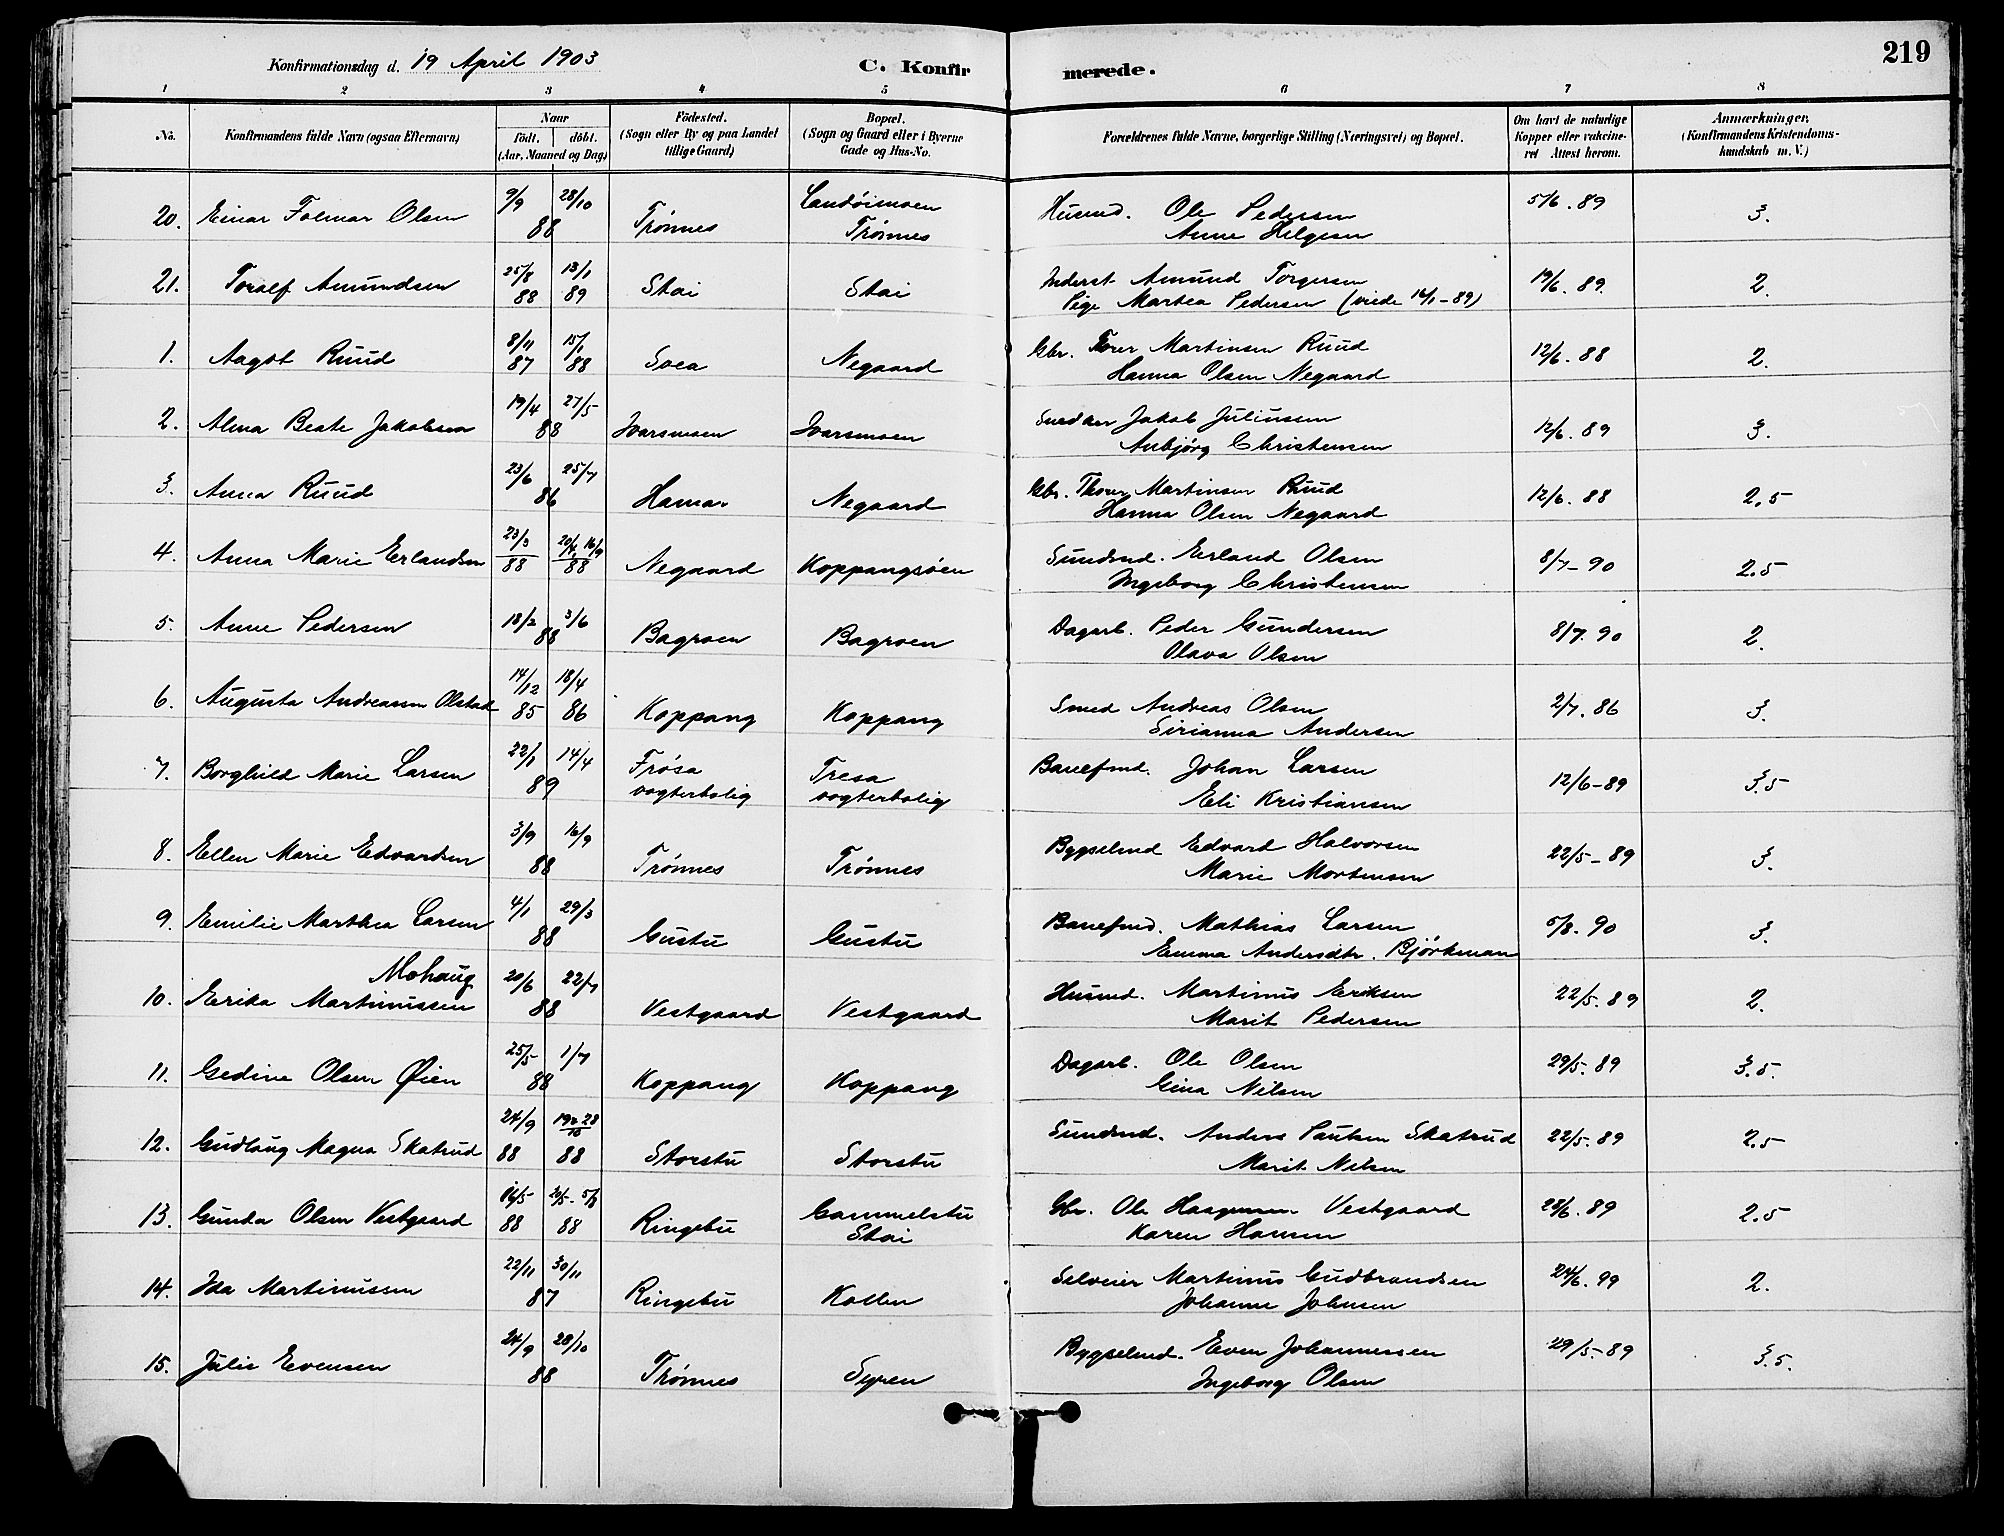 Konfirmationsdag d. 19 April 1903
C. Konfirmerede.
219
1 2 3 4 5 6 7 8
No.
Konfirmandens fulde Navn (ogsaa Efternavn)
Naar
født. døbt.
(Aar, Maaned og Dag)
Fødested.
(Sogn eller By og paa Landet
tillige Gaard)
Bopæl.
(Sogn og Gaard eller i Byerne
Gade og Hus-No.
Forældrenes fulde Navne, borgerlige Stilling (Næringsvei) og Bopæl.
Om havt de naturlige
Kopper eller vakcine-
ret Attest herom.
Anmærkninger.
(Konfirmandens Kristendoms-
kundskab m. V.)
20. Einar Folmar Olsen 9/9 28/10 88 Trønnes Landöimoen Trønnes Husmd. Ole Pedersen Anne Helgesen 5/6. 89 3.
21. Toralf Amundsen 25/8 88 13/1 89 Stai Stai Inderst Amund Torgersen
Pige Martea Pedersen (viede 14/1-89) 19/6. 89. 2.
1. Aagot Ruud 8/11 87 15/1 88 Svea Negaard Gbr. Torer Martinsen Ruud
Hanna Olsen Negaard 12/6. 88 2.
2. Alma Beate Jakobsen 19/4 27/5 88 Ivarsmoen Ivarsmoen Snedker Jakob Juliussen
Anbjørg Christensen 12/6. 89 3.
3. Anna Ruud 23/6 25/7 86 Hamar Negaard Gbr. Thorer Martinsen Ruud
Hanna Olsen Negaard 12/6. 88 2.5
4. Anna Marie Erlandsen 23/3 88 20/4 16/9 88 Negaard Koppangsøen Sundmd. Erland Olsen
Ingeborg Christensen 8/7-90 2.5
5. Anne Pedersen 18/2 3/6 88 Bagroen Bagroen Dagarb. Peder Gundersen
Olava Olsen 8/7. 90 2.
6. Augusta Andreassen Olstad 14/12 85 18/4 86 Koppang Koppang Smed Andreas Olsen
Sirianna Andersen 2/7. 86 3.
7. Borghild Marie Larsen 22/1 14/4 89 Frøsa vogterbolig Tresa vogterbolig Banefmd. Johan Larsen
Eli Kristiansen 12/6-89 3.5
8. Ellen Marie Edvardsen 3/9 16/9 88 Trønnes Trønnes Bygselmd Edvard Halvorsen
Marie Mortensen 22/5-89 3.
9. Emilie Marthea Larsen 4/1 29/3 88 Gustu Gustu Banefmd. Mathias Larsen
Emma Andersdtr. Bjørkman 5/8. 90 3.
Mohaug
10. Erika Martinussen 20/6 22/7 88 Vestgaard Vestgaard Husmd. Martinus Eriksen
Marit Pedersen 22/5. 89 2.
11. Gedine Olsen Øien 25/5 1/7 88 Koppang Koppang Dagarb. Ole Olsen
Gina Nilsen 29/5. 89 3.5.
12. Gudlaug Magna Skatrud 24/9 88 88 Storstu Storstu Sundmd. Anders Paulsen Skatrud
Marit Nilsen 22/5. 89 2.5
13. Gunda Olsen Vestgaard 16/5 88 20/5. 5/8 88 Ringebu Gammelstu Stai Gbr. Ole Haagensen Vestgaard
Karen Hansen 28/6. 89 2.5
14. Ida Martinussen 22/11 30/11 87 Ringebu Kollen Selveier Martinus Gudbrandsen
Johanne Johnsen 24/6. 99 2.
15. Julie Evensen 24/9 28/10 88 Trønnes Syren Bygselmd. Even Johannessen
Ingeborg Olsen 29/5-89 3.5.